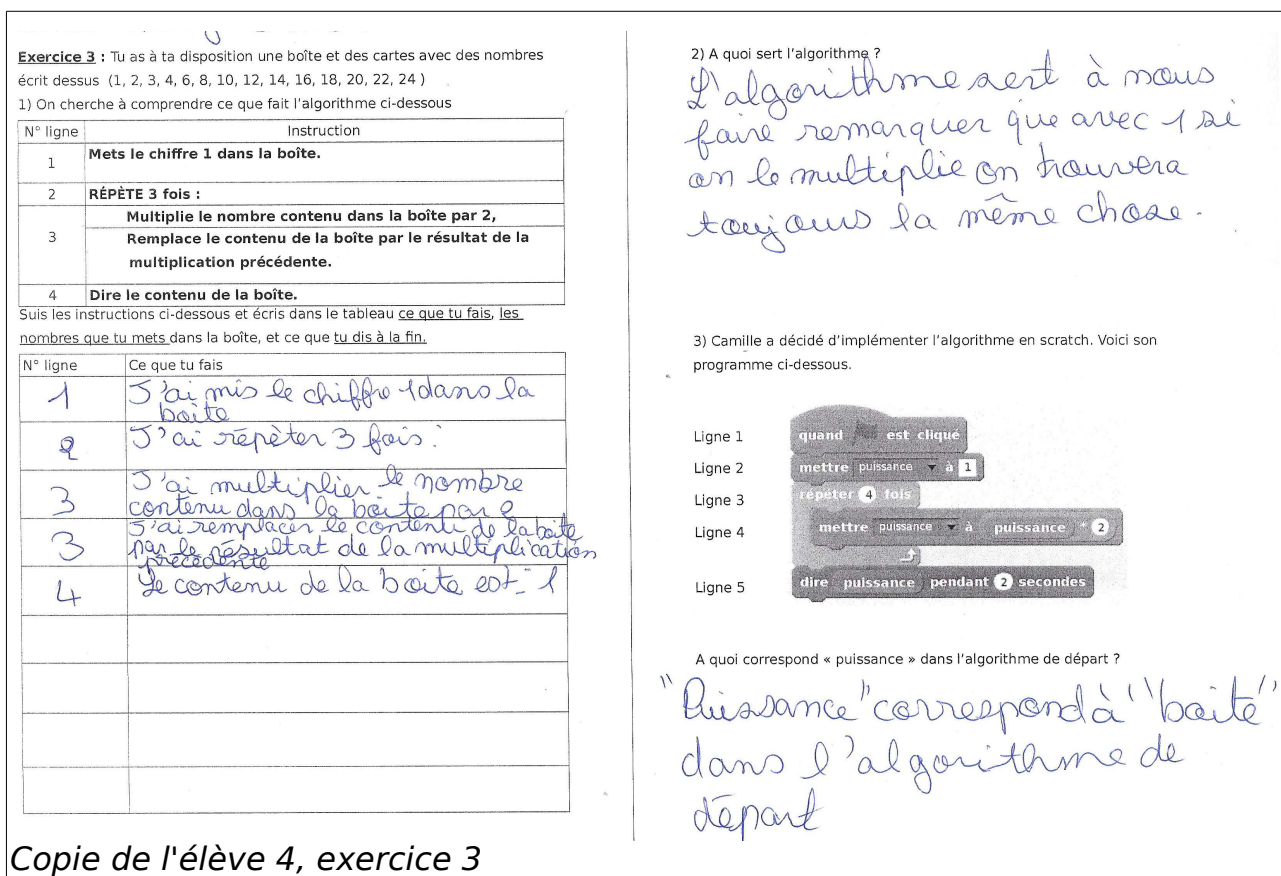 Exercice 3 : Tu as à ta disposition une boîte et des cartes avec des nombres
écrit dessus (1, 2, 3, 4, 6, 8, 10, 12, 14, 16, 18, 20, 22, 24 )
1) On cherche à comprendre ce que fait l'algorithme ci-dessous
N° ligne Instruction
1 Mets le chiffre 1 dans la boîte.
2 RÉPÈTE 3 fois :
3 Multiplie le nombre contenu dans la boîte par 2,
Remplace le contenu de la boîte par le résultat de la
multiplication précédente.
4 Dire le contenu de la boîte.
Suis les instructions ci-dessous et écris dans le tableau ce que tu fais, les
nombres que tu mets dans la boîte, et ce que tu dis à la fin.
N° ligne Ce que tu fais
1 J'ai mis le chiffre 1 dans la
boite
2 J'ai répèter 3 fois :
3 J'ai multiplier le nombre
contenu dans la boite par 2
3 J'ai remplacer le contenu de la boite
par le résultat de la multiplication
précédente
4 Le contenu de la boite est 1
2) A quoi sert l'algorithme ?
L'algorithme sert à nous
faire remarquer que avec 1 si
on le multiplie on trouvera
toujours la même chose.
3) Camille a décidé d'implémenter l'algorithme en scratch. Voici son
programme ci-dessous.
Ligne 1 quand est cliqué
Ligne 2 mettre puissance à 1
Ligne 3 répéter 4 fois
Ligne 4 mettre puissance à puissance * 2
Ligne 5 dire puissance pendant 2 secondes
A quoi correspond « puissance » dans l'algorithme de départ ?
"Puissance" correspond à "boite"
dans l'algorithme de
départ
Copie de l'élève 4, exercice 3